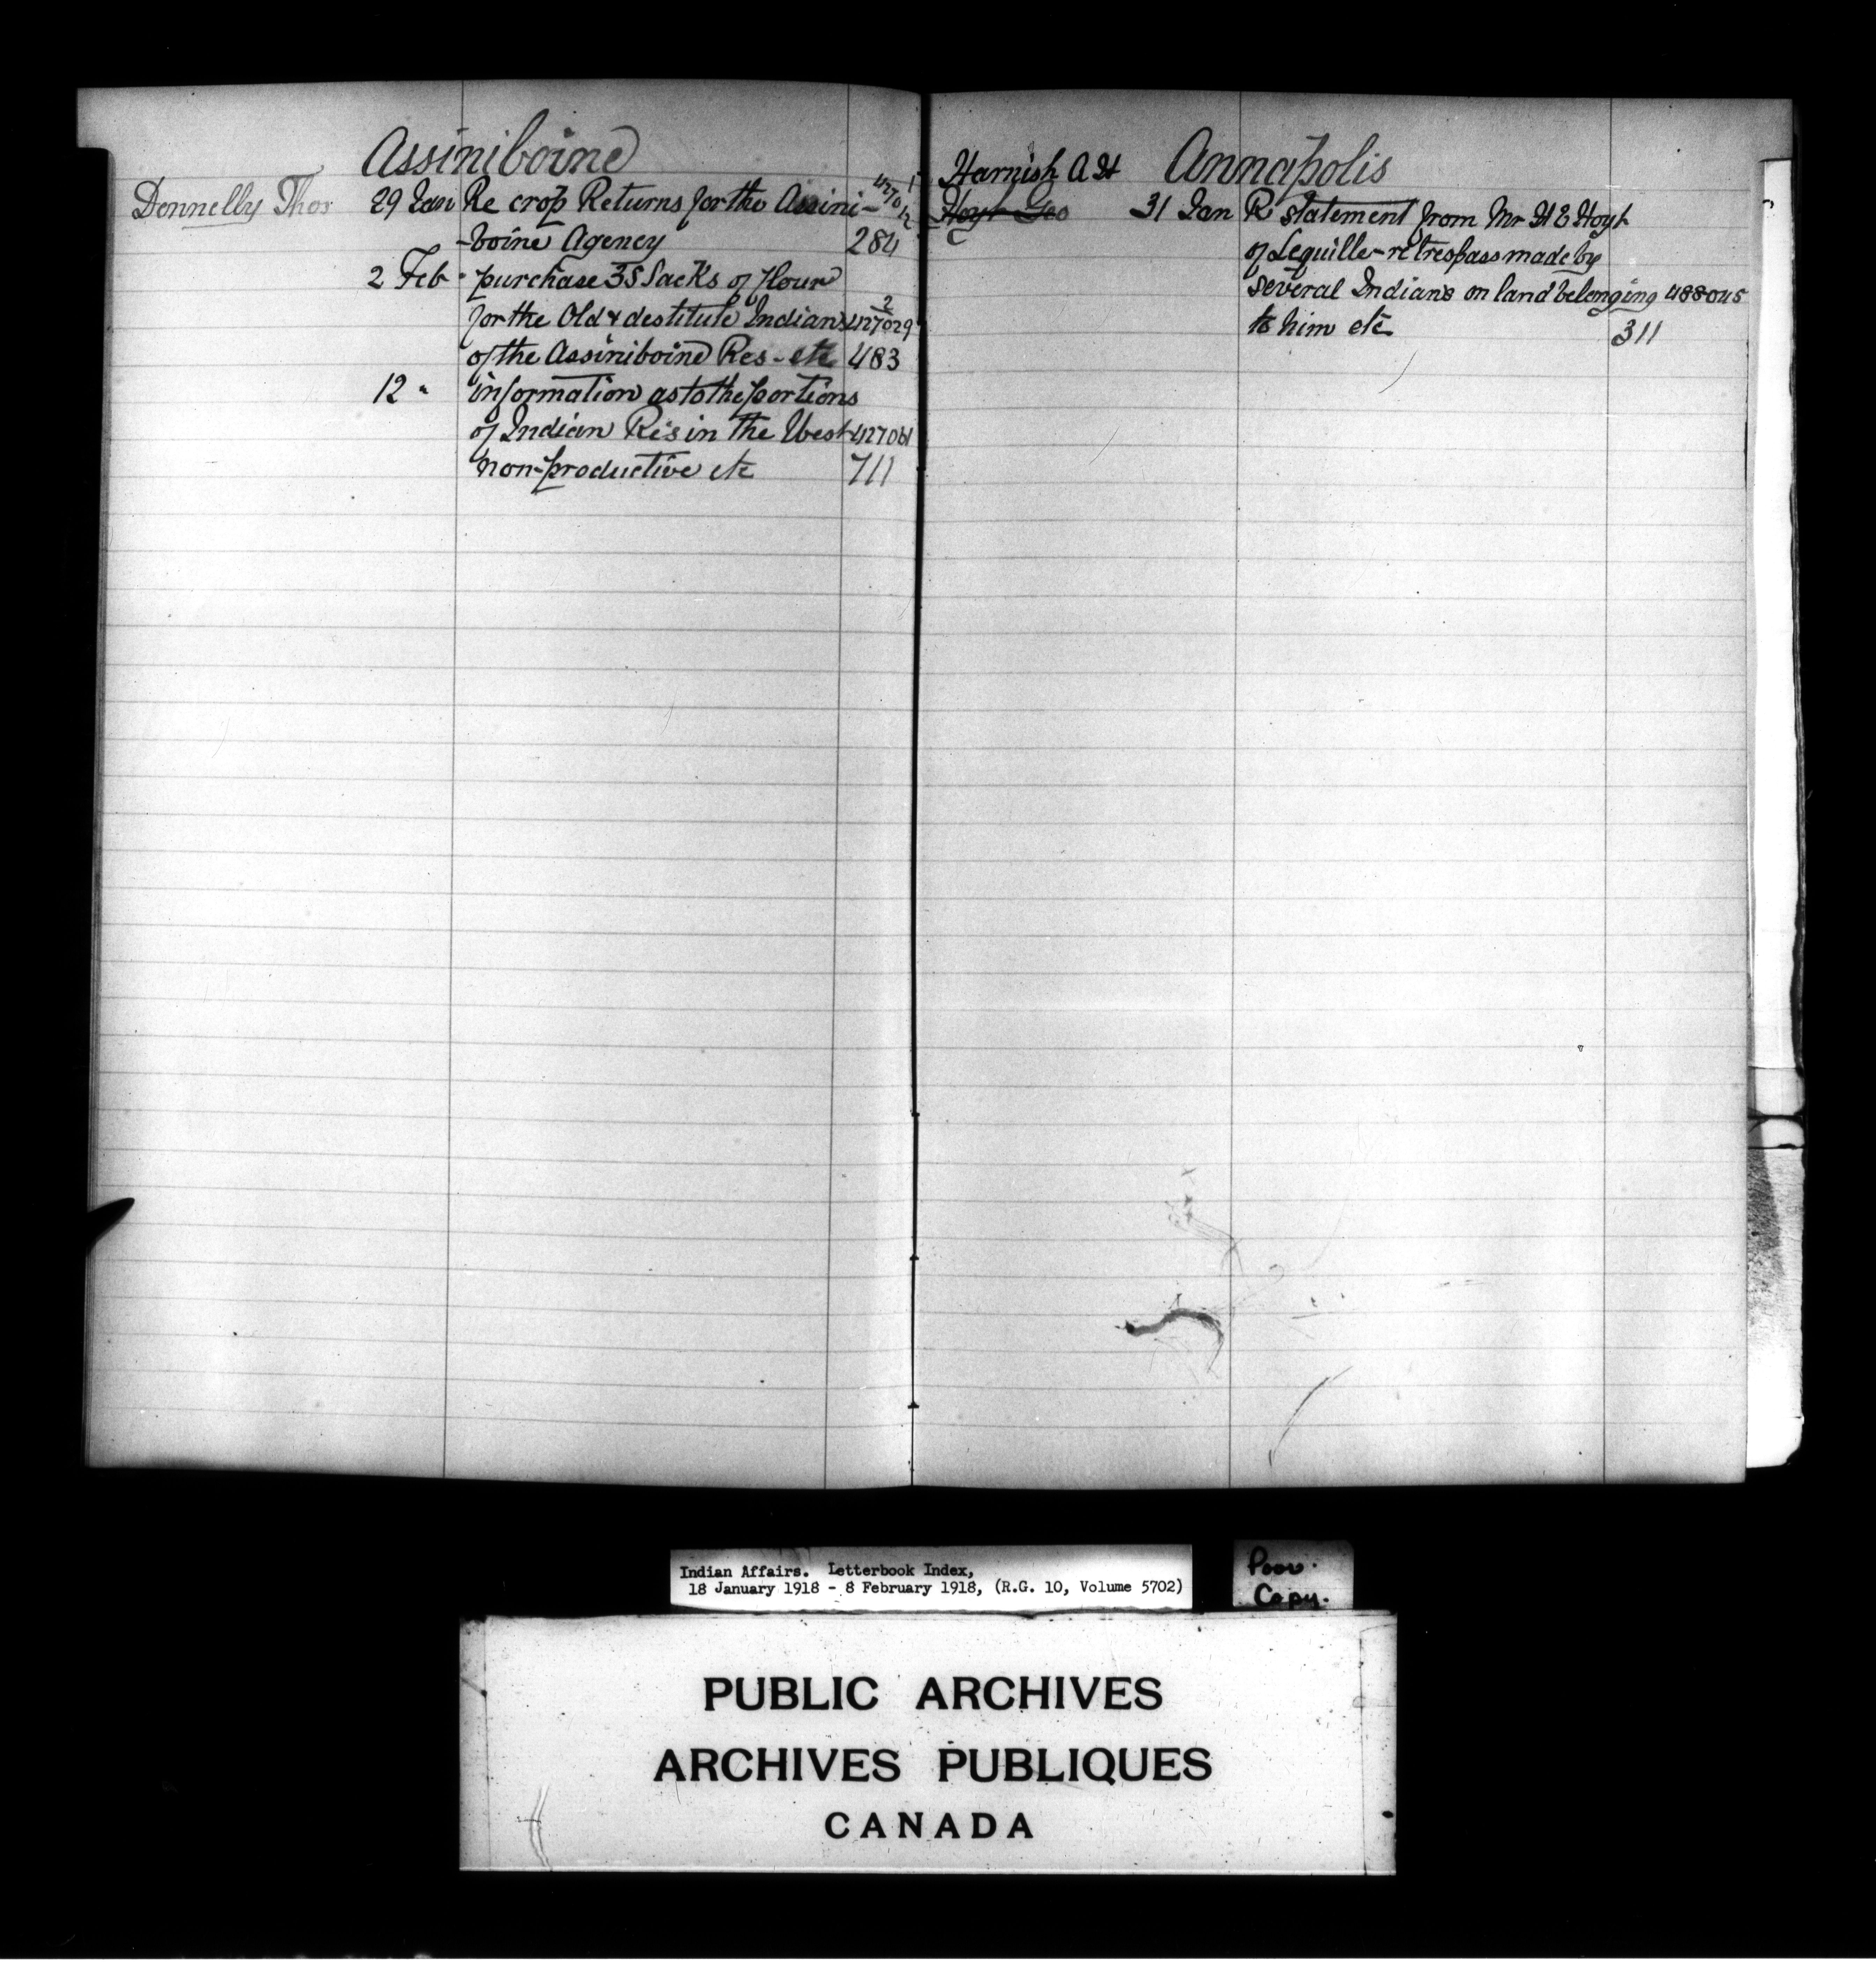 Assiniboine
Donnelly Thos 29 Jan Re crop Returns for the Assini-
-boine Agency 284
2 Feb " purchase 35 Sacks of flour
for the Old & destitute Indians 427029-2
of the Assiniboine Res - etc 483
12 " information as to the portions
of Indian Res in the West 427061
non-productive etc 711
Harnish A H Annapolis
Hoyt Geo 31 Jan R statement from Mr H E Hoyt
of Lequille - re trespass made by
several Indians on land belonging 488045
to him etc 311
Indian Affairs. Letterbook Index,
18 January 1918 - 8 February 1918, (R.G. 10, Volume 5702)
Poor
Copy.
PUBLIC ARCHIVES
ARCHIVES PUBLIQUES
CANADA